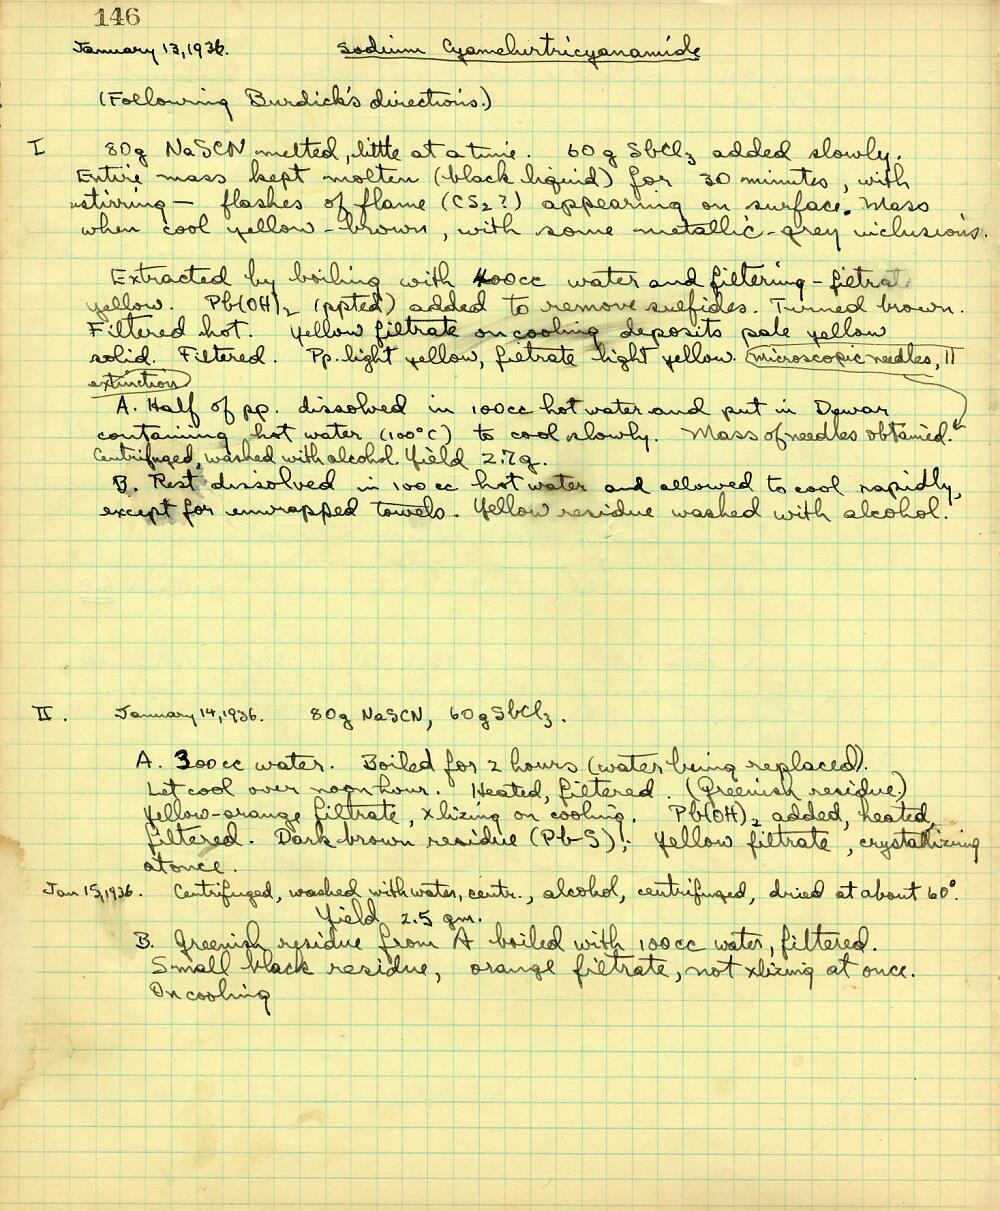 146
January 13, 1936. Sodium Cyamelurtricyanamide
(Following Burdick's directions.)
I 80g NaSCN melted, little at a time. 60 g SbCl3 added slowly.
Entire mass kept molten (black liquid) for 30 minutes, with
stirring — flashes of flame (CS2?) appearing on surface. Mass
when cool yellow-brown, with some metallic-grey inclusions.
Extracted by boiling with 400cc water and filtering - filtrate
yellow. Pb(OH)2 (ppted) added to remove sulfides. Turned brown.
Filtered hot. Yellow filtrate on cooling deposits pale yellow
solid. Filtered. Pp. light yellow, filtrate light yellow. microscopic needles, ||
extinction
A. Half of pp. dissolved in 100cc hot water and put in Dewar
containing hot water (100°C) to cool slowly. Mass of needles obtained.
Centrifuged, washed with alcohol. Yield 2.7g.
B. Rest dissolved in 100 cc hot water and allowed to cool rapidly,
except for enwrapped towels. Yellow residue washed with alcohol.
II. January 14, 1936. 80g NaSCN, 60g SbCl3.
A. 300cc water. Boiled for 2 hours (water being replaced).
Let cool over noon hour. Heated, filtered. (Greenish residue.)
Yellow-orange filtrate, xlizing on cooling. Pb(OH)2 added, heated,
filtered. Dark brown residue (Pb-S)! Yellow filtrate, crystallizing
at once.
Jan 15, 1936. Centrifuged, washed with water, centr., alcohol, centrifuged, dried at about 60°.
Yield 2.5 gm.
B. Greenish residue from A boiled with 100cc water, filtered.
Small black residue, orange filtrate, not xlizing at once.
On cooling